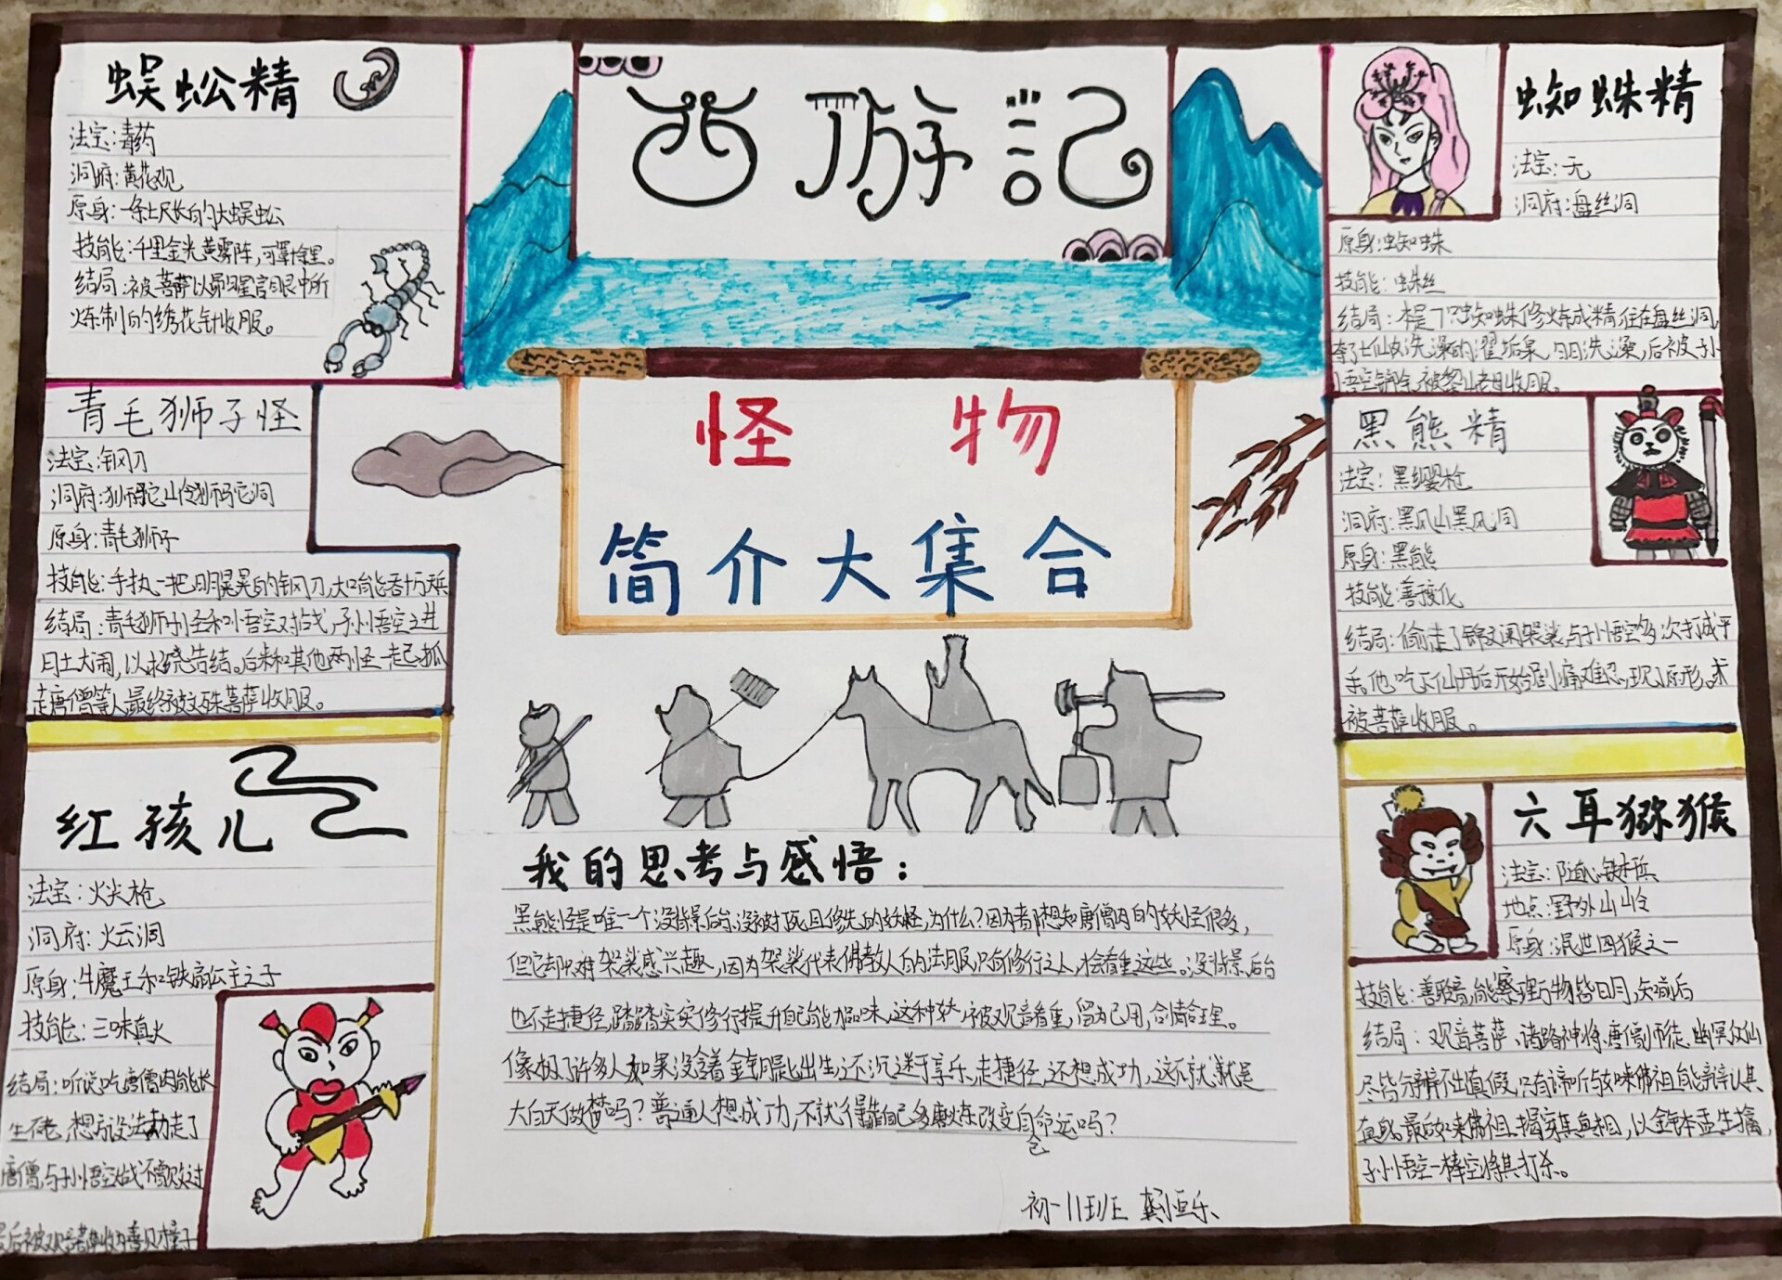 西游記
怪物
简介大集合
蜈蚣精
法宝:毒药
洞府:黄花观
原身:一条七尺长的大蜈蚣
技能:千里金光黄雾阵,可罩十余里。
结局:被菩萨以昴日星官眼中所
炼制的绣花针收服。
青毛狮子怪
法宝:钢刀
洞府:狮驼山岭狮驼洞
原身:青毛狮子
技能:手执一把明晃晃的钢刀,大口能吞十万天兵
结局:青毛狮子怪和孙悟空对战,孙悟空之进
肚大闹,以求饶告结。后来和其他两怪一起抓
走唐僧等人,最终被文殊菩萨收服。
红孩儿
法宝:火尖枪
洞府:火云洞
原身:牛魔王和铁扇公主之子
技能:三味真火
结局:听说吃唐僧肉能长
生不老,想方设法劫走了
唐僧,与孙悟空对战不敌过
最后被观音菩萨收为善财童子
蜘蛛精
法宝:无
洞府:盘丝洞
原身:蜘蛛
技能:蛛丝
结局:本是7只蜘蛛修炼成精住在盘丝洞,
夺了七仙女洗澡的濯垢泉,日日洗澡,后被孙
悟空铲除,被黎山老母收服。
黑熊精
法宝:黑缨枪
洞府:黑风山黑风洞
原身:黑熊
技能:善变化
结局:偷走了锦斓袈裟,与孙悟空多次打成平
手。他吃下仙丹后开始剧痛难忍,现原形。
被菩萨收服。
六耳猕猴
法宝:随心铁杆兵
地点:野外山岭
原身:混世四猴之一
技能:善聆音,能察理,万物皆明,知前后
结局:观音菩萨、诸路神将、唐僧师徒、幽冥众仙
尽皆分辨不出真假,只有谛听与如来佛祖能辨认其
真身。最后如来佛祖揭穿其真相,以金钵盂生擒,
孙悟空一棒空将其打杀。
我的思考与感悟:
黑熊怪是唯一个没背景后台,没被打死且修先的妖怪,为什么?因为都想知唐僧肉的妖怪很多,
但它却只对袈裟感兴趣,因为袈裟代表佛教人的法服,只有修行之人,才会看重这些。没背景,后台
也不走捷径,踏踏实实修行提升自己能力品味,这种妖,被观音看重,留为己用,合情合理。
像极了许多人,如果没含着金钥匙出生,还沉迷于享乐,走捷径,还想成功,这不就是
大白天做梦吗?普通人想成功,不就得靠自己多磨炼改变自命运吗?
己
初一11班 龚恒乐